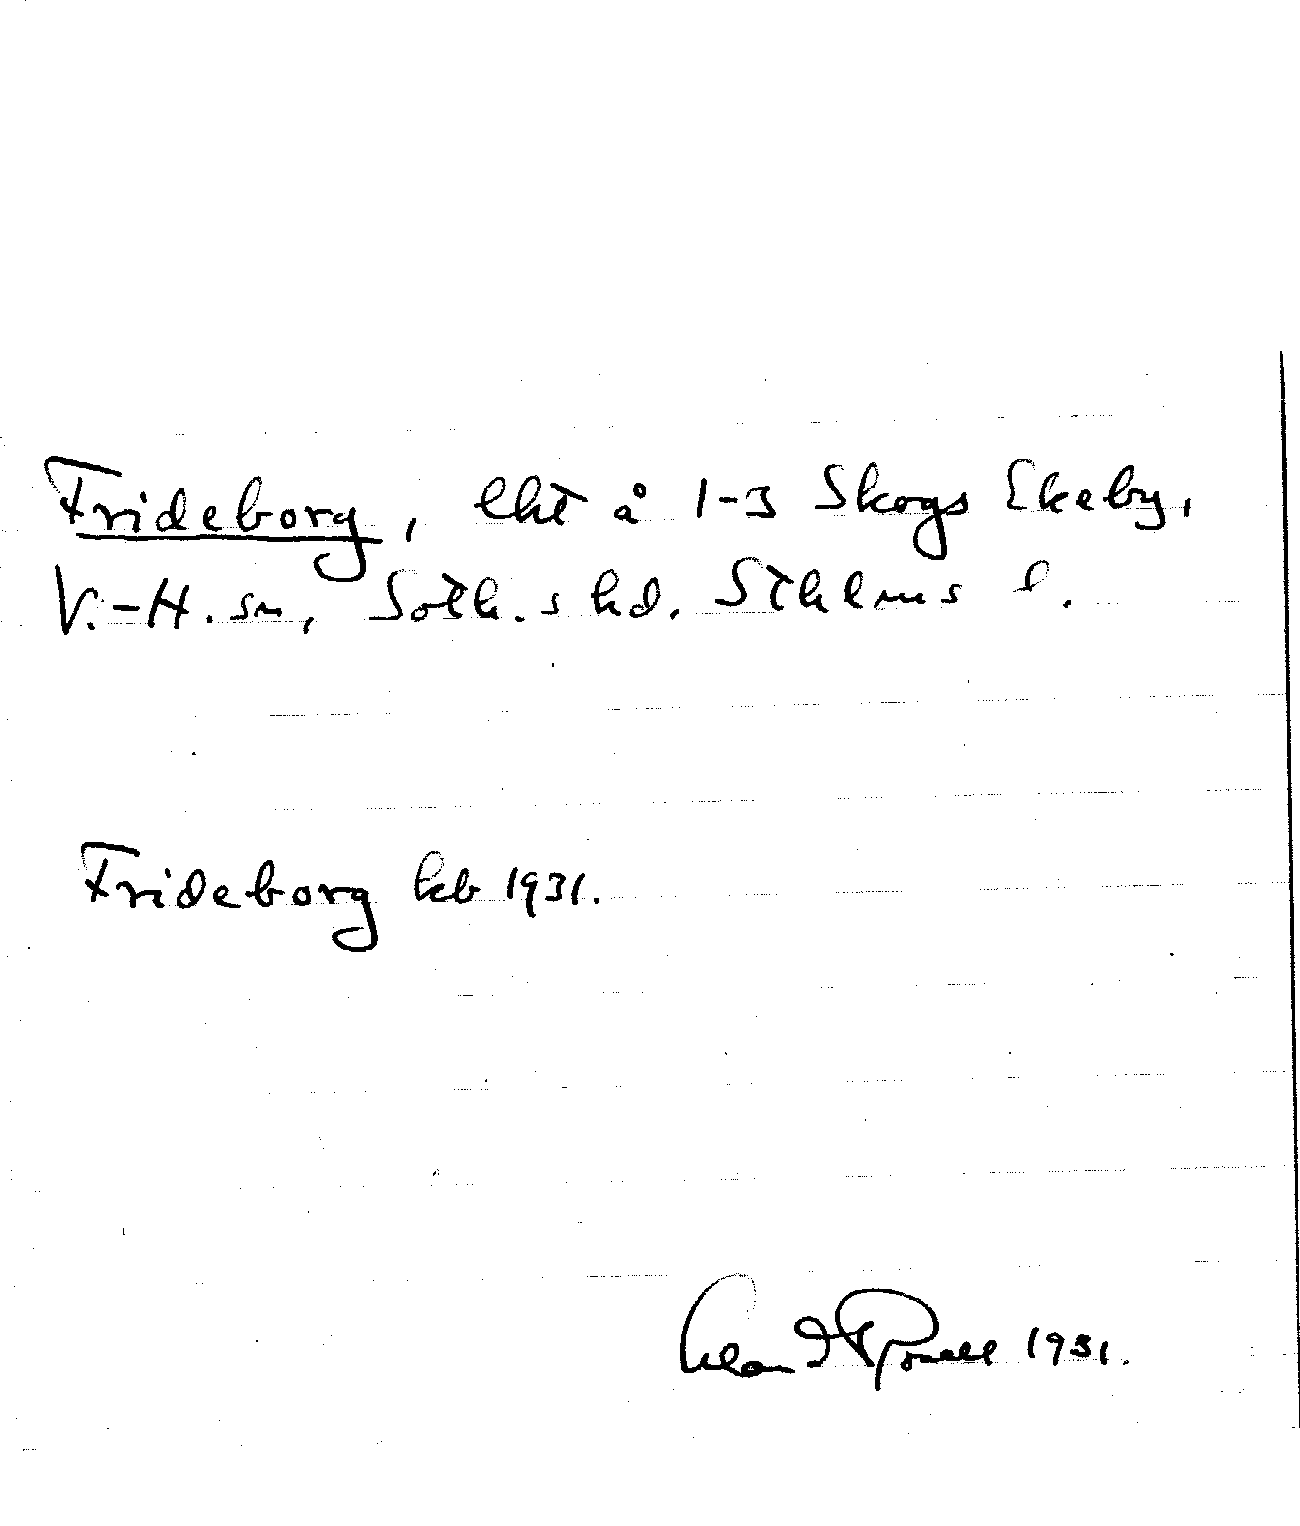 Frideborg, lht å 1-3 Skogs Ekeby,
V.-H. sn, Soth.s hd. Sthlms l.
Frideborg kb 1931.
1931.